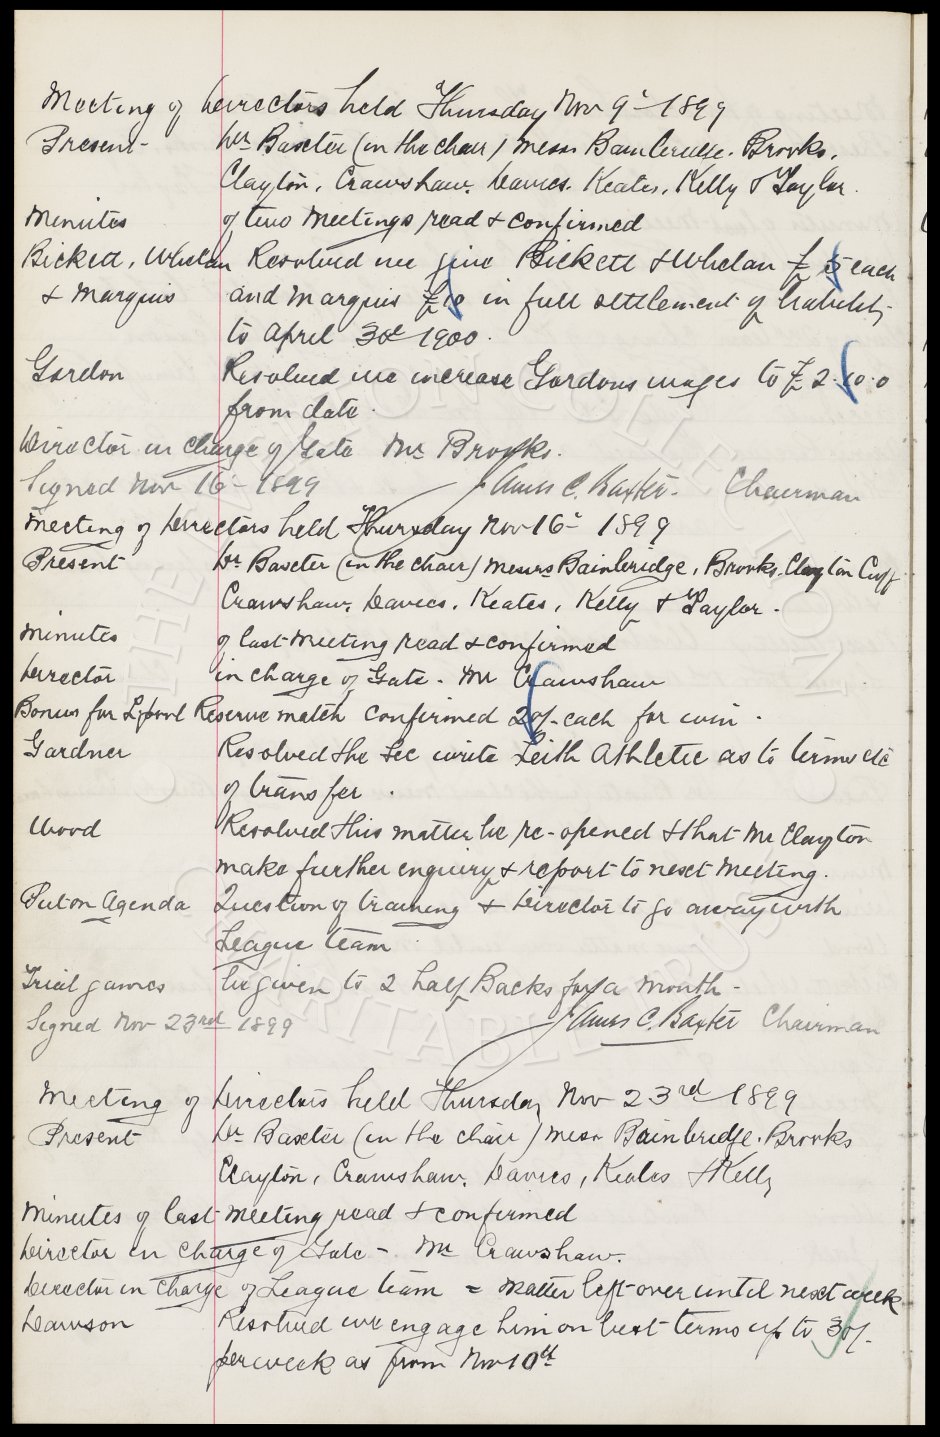 Meeting of Directors held Thursday Nov 9th 1899
Present - Dr Baxter (in the chair) Messrs Bainbridge. Brooks.
Clayton, Crawshaw. Davies. Keates, Kelly & Taylor.
Minutes of two meetings read & confirmed
Bickett, Whelan Resolved we give Bickett & Whelan £5 each
& Marquis and Marquis £10 in full settlement of liability
to April 30th 1900.
Gordon Resolved we increase Gordons wages to £2.10.0
from date.
Director in charge of Gate Mr Brooks.
Signed Nov 16th 1899 James C. Baxter. Chairman
Meeting of Directors held Thursday Nov 16th 1899
Present Dr Baxter (in the chair) Messrs Bainbridge, Brooks. Clayton Cuff
Crawshaw, Davies, Keates, Kelly & Taylor.
Minutes of last meeting read & confirmed
Director in charge of Gate. Mr Crawshaw
Bonus for L'pool Reserve match confirmed 20/- each for win.
Gardner Resolved the Sec write Leith Athletic as to terms etc
of transfer.
Wood Resolved this matter be re-opened & that Mr Clayton
make further enquiry & report to next meeting.
Put on Agenda Question of training & Director to go away with
League team
Trial games be given to 2 half Backs for a month -
Signed Nov 23rd 1899 James C. Baxter Chairman
Meeting of Directors held Thursday Nov 23rd 1899
Present Dr Baxter (in the chair) Messrs Bainbridge. Brooks
Clayton, Crawshaw. Davies, Keates & Kelly
Minutes of last meeting read & confirmed
Director in charge of Gate - Mr Crawshaw.
Director in charge of League team = Matter left over until next week
Dawson Resolved we engage him on best terms up to 30/-
per week as from Nov 10th
THE EVERTON COLLECTION
CHARITABLE TRUST